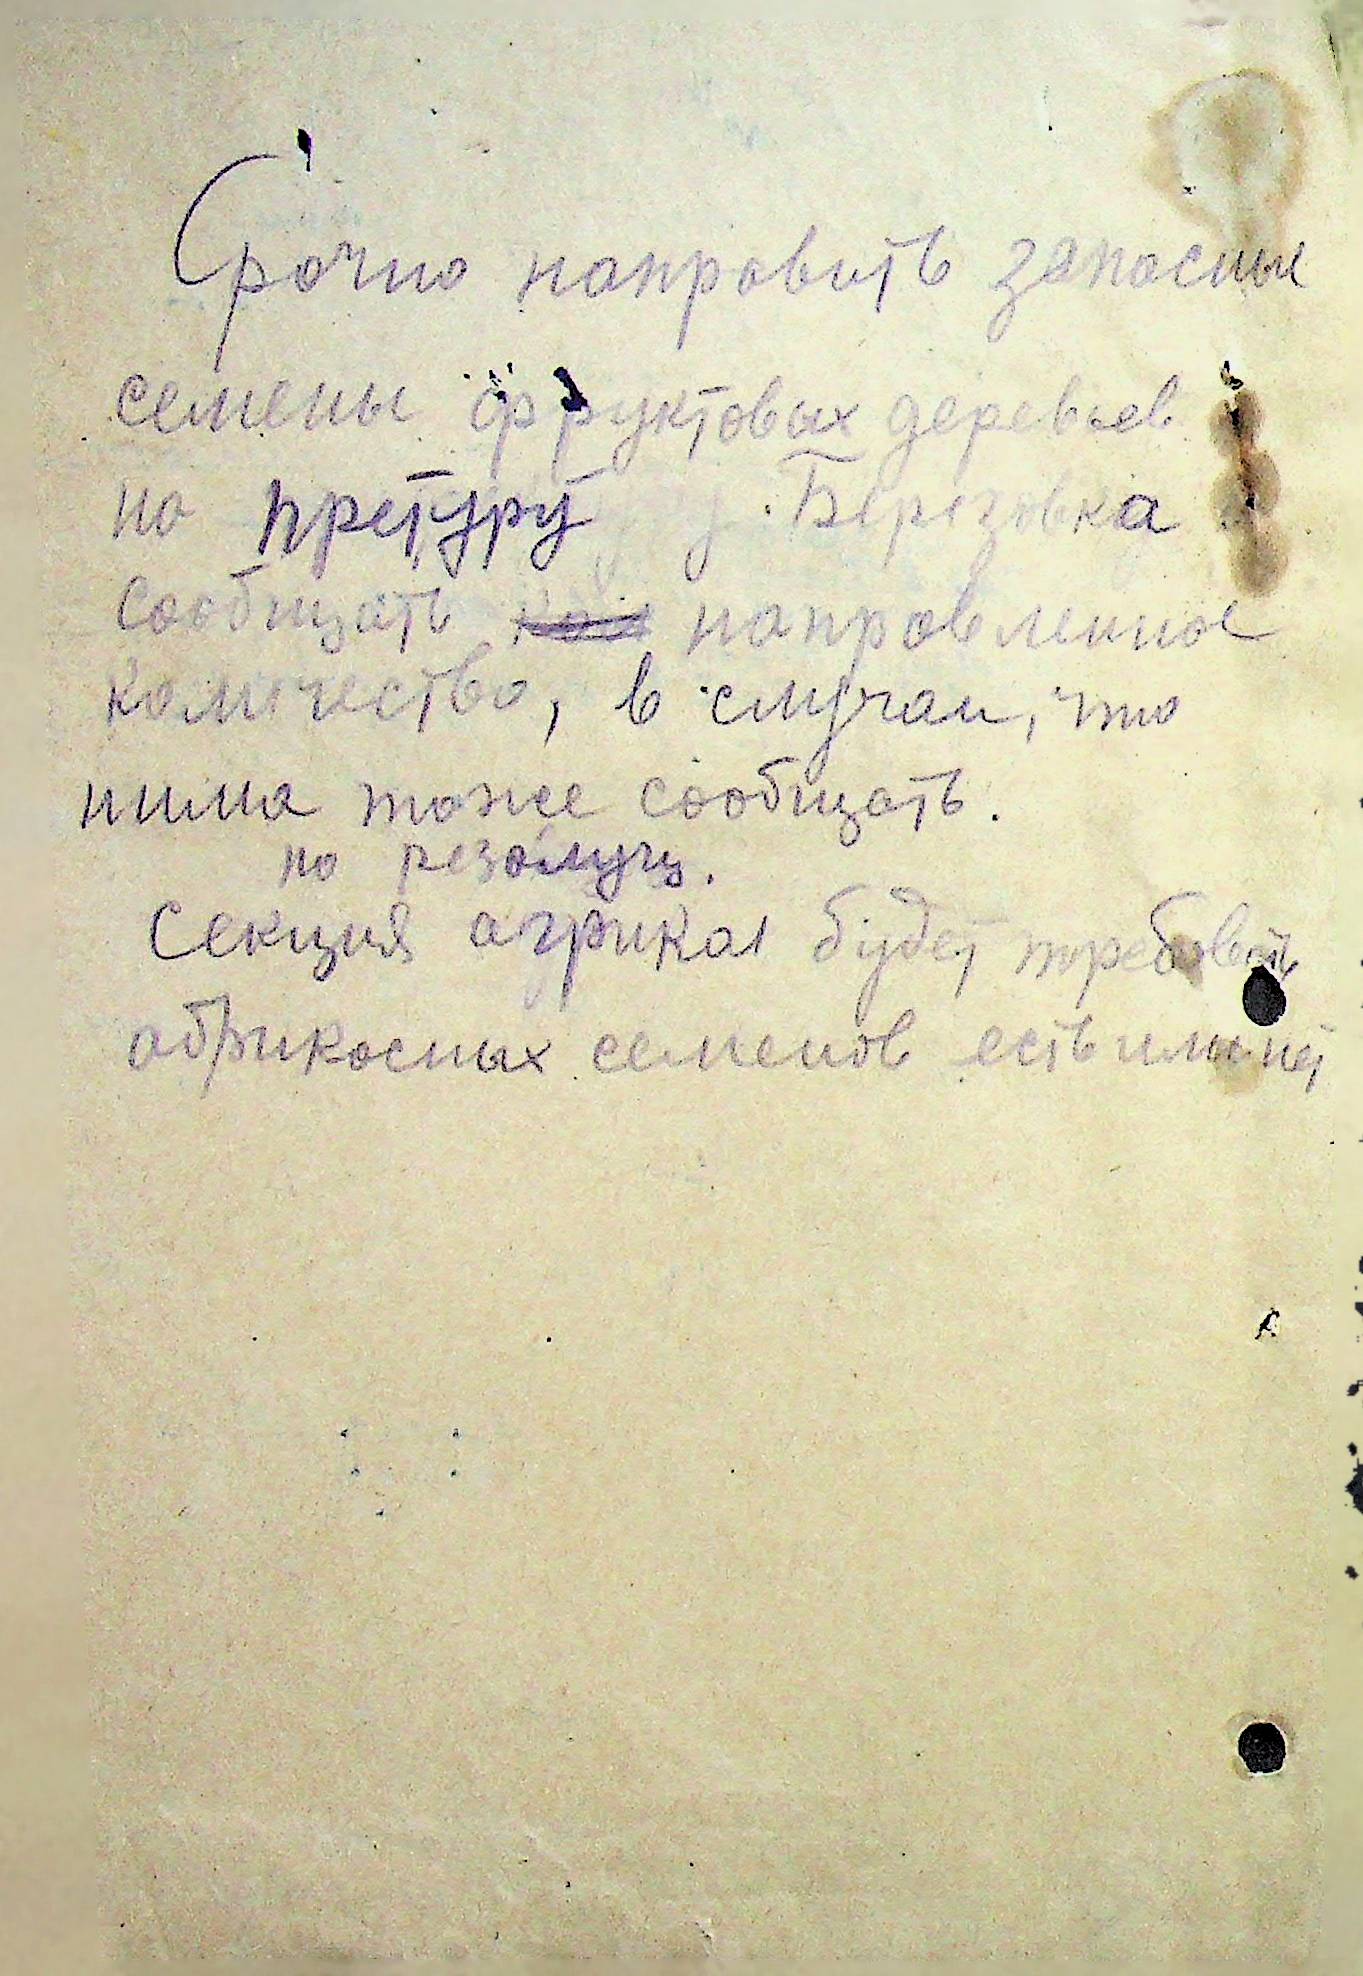 Срочно направить запасные
семены фруктовых деревьев
на претуру Березовка
сообщать направленное
количество, в случаи, что
нима тоже сообщать.
по резолуц.
Секция агрикол будет требовать
абрикосных семенов есть или нет